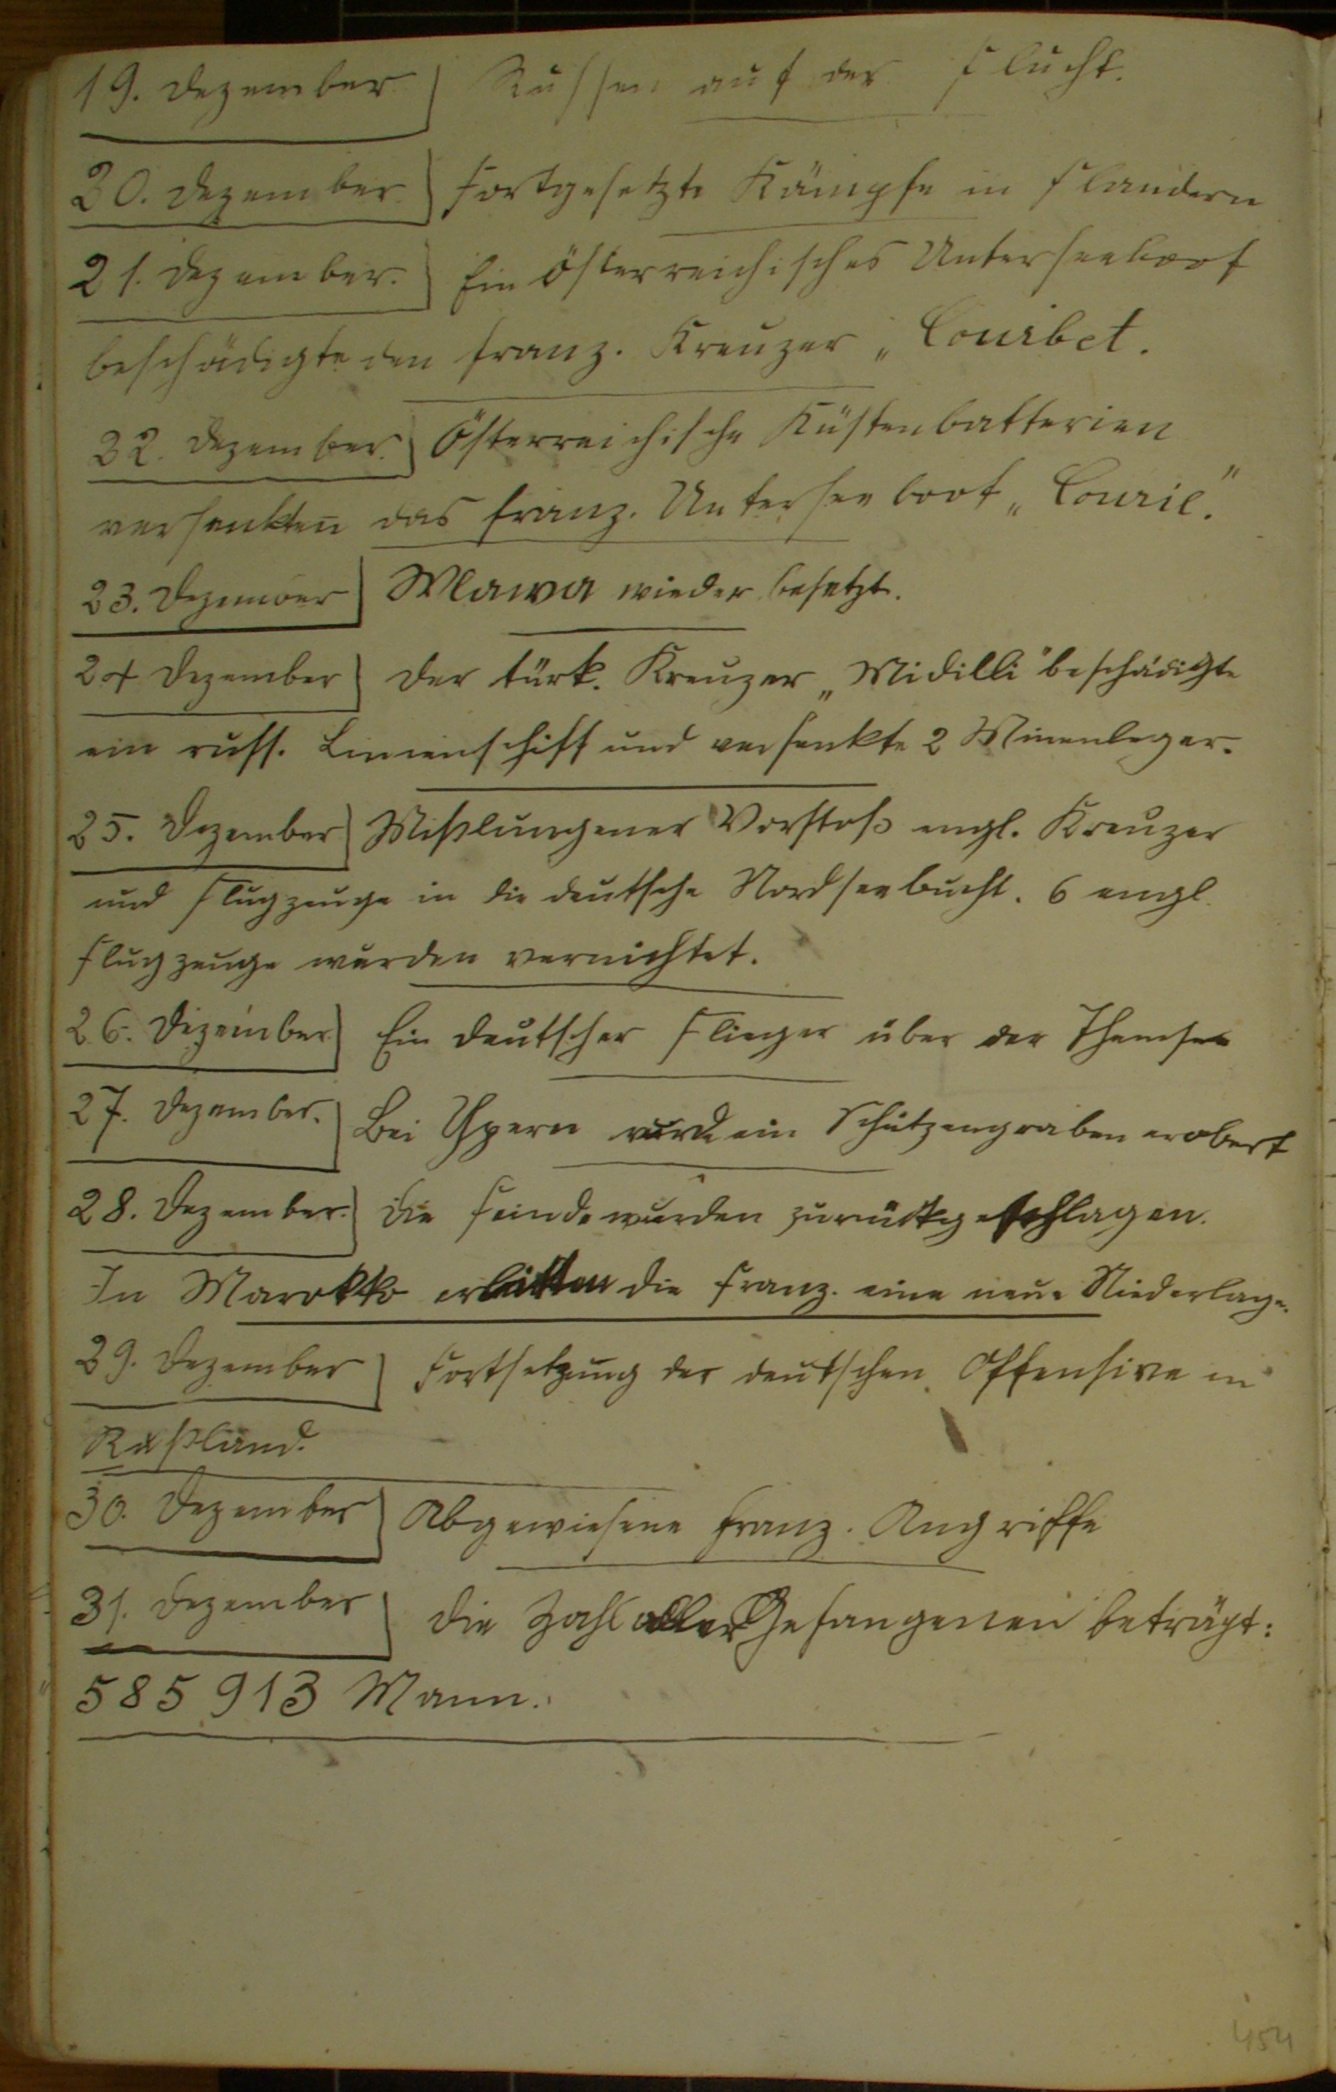 19. Dezember Russen auf der Flucht.
20. Dezember Fortgesetzte Kämpfe in Flandern
21. Dezember. Ein österreichisches Unterseeboot
beschädigte den franz. Kreuzer „Courbet.
22. Dezember. Österreichische Küstenbatterien
versenkten das franz. Unterseeboot „Courie".
23. Dezember Mlawa wieder besetzt.
24 Dezember Der türk. Kreuzer „Midilli" beschädigte
ein russ. Linienschiff und versenkte 2 Minenleger.
25. Dezember Mißlungener Vorstoß engl. Kreuzer
und Flugzeuge in die deutsche Nordseebucht. 6 engl.
Flugzeuge wurden vernichtet.
26. Dezember Ein deutscher Flieger über der Themse
27. Dezember. Bei Ypern wurde ein Schützengraben erobert
28. Dezember. Die Feinde wurden zurückgeschlagen.
In Marokko erlitten die Franz. eine neue Niederlage.
29. Dezember Fortsetzung der deutschen Offensive in
Rußland.
30. Dezember Abgewiesene franz. Angriffe
31. Dezember Die Zahl aller Gefangenen beträgt:
585 913 Mann.
454